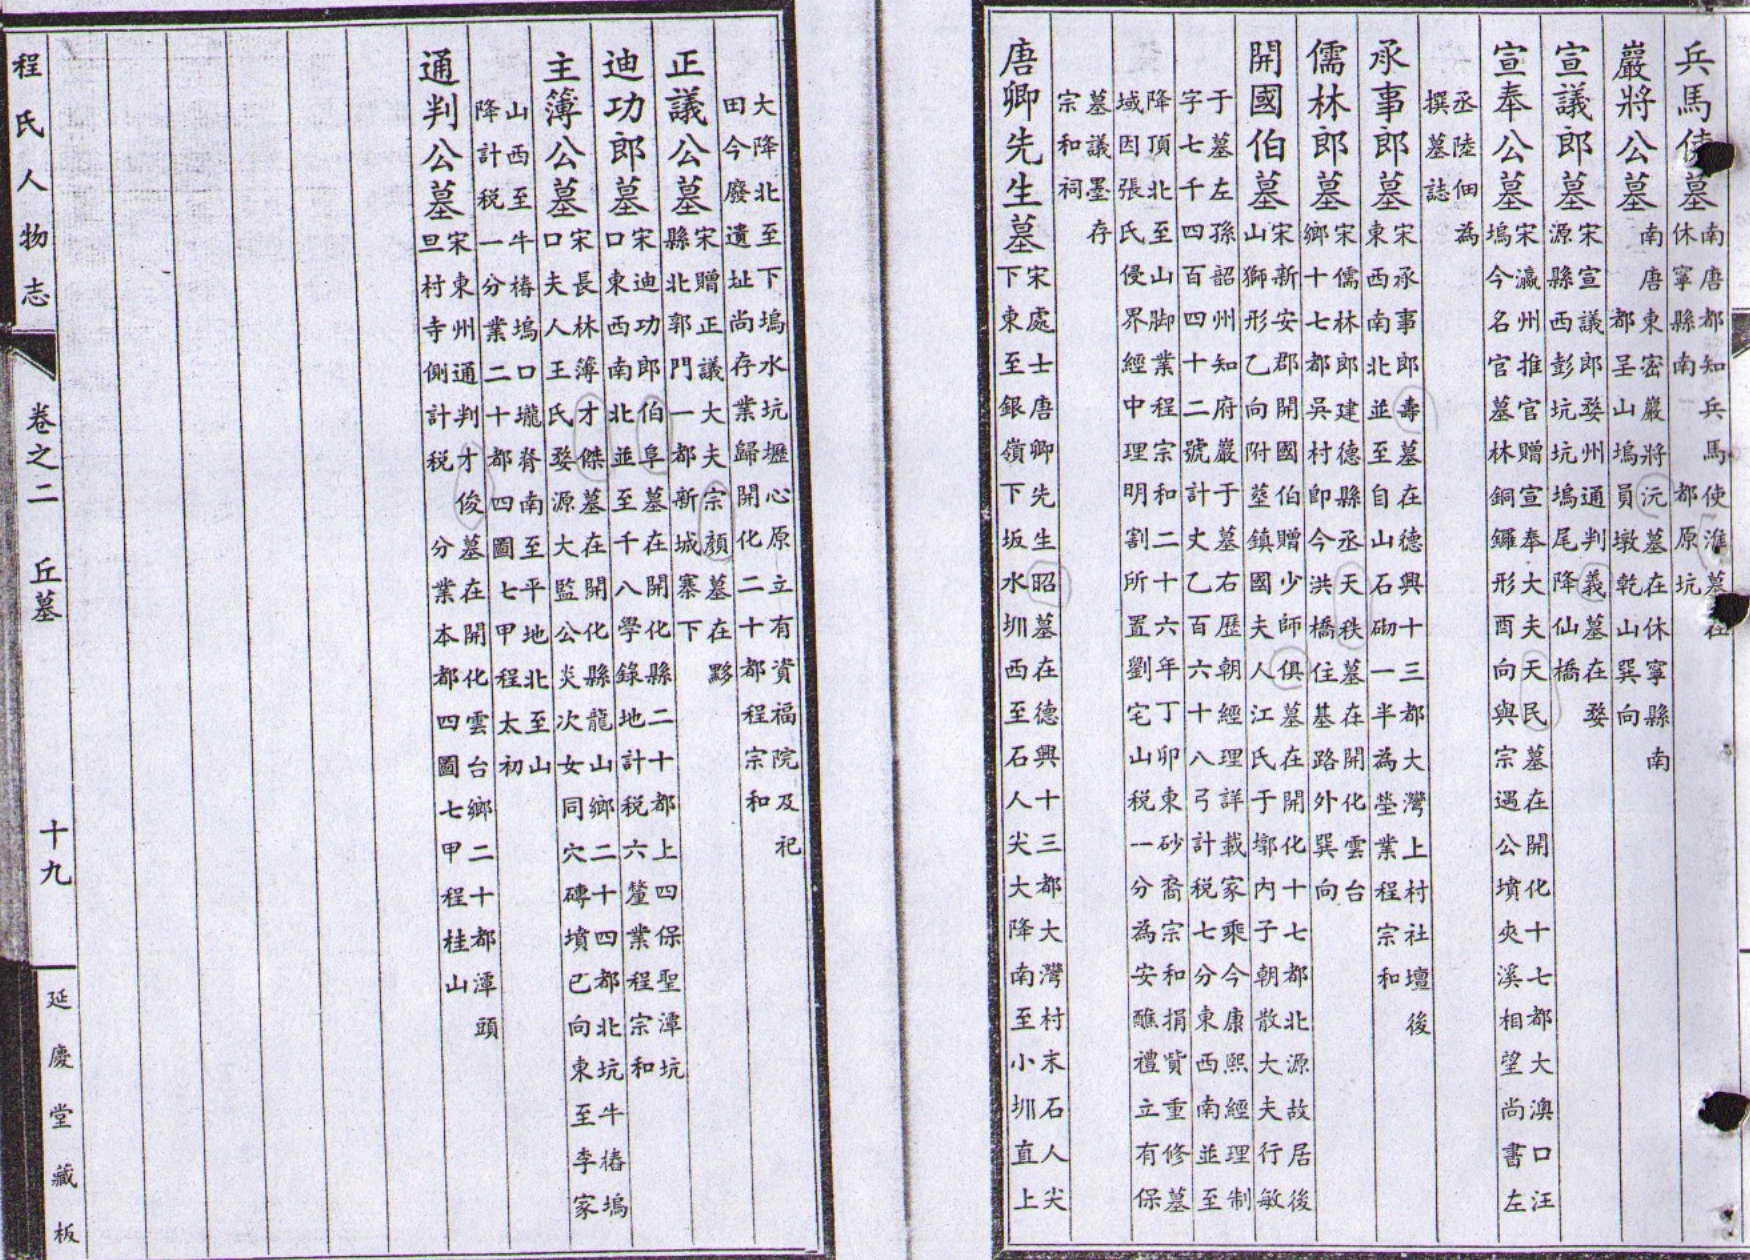 兵馬使墓南唐都知兵馬使淮墓在
休寧縣南都原坑
巖將公墓南唐東密巖將沅墓在休寧縣南
都呈山塢員墩乾山巽向
宣議郎墓宋宣議郎婺州通判義墓在婺
源縣西彭坑坑塢尾降仙橋
宣奉公墓宋瀛州推官贈宣奉大夫天民墓在開化十七都大澳口汪
塢今名官墓林銅鑼形酉向與宗遇公墳夾溪相望尚書左
丞陸佃為
撰墓誌
承事郎墓宋承事郎壽墓在德興十三都大灣上村社壇後
東西南北並至自山石砌一半為塋業程宗和
儒林郎墓宋儒林郎建德縣丞天秩墓在開化雲台
鄉十七都吳村即今洪橋住基路外巽向
開國伯墓宋新安郡開國伯贈少師俱墓在開化十七都北源故居後
山獅形乙向附塟鎮國夫人江氏于墎內子朝散大夫行敏
于墓左孫韶州知府巖于墓右歷朝經理詳載家乘今康熙經理制
字七千四百四十二號計丈乙百六十八弓計税七分東西南並至
降頂北至山脚業程宗和二十六年丁卯東砂裔宗和捐貲重修墓
域因張氏侵界經中理明割所置劉宅山税一分為安醮禮立有保
墓議墨存
宗和祠
唐卿先生墓宋處士唐卿先生昭墓在德興十三都大灣村末石人尖
下東至銀嶺下坂水圳西至石人尖大降南至小圳直上
大降北至下塢水坑壢心原立有資福院及祀
田今廢遺址尚存業歸開化二十都程宗和
正議公墓宋贈正議大夫宗顏墓在黟
縣北郭門一都新城寨下
迪功郎墓宋迪功郎伯阜墓在開化縣二十都上四保聖潭坑
口東西南北並至千八學錄地計税六釐業程宗和
主簿公墓宋長林簿才傑墓在開化縣龍山鄉二十四都北坑牛樁塢
口夫人王氏婺源大監公炎次女同穴磚墳巳向東至李家
山西至牛樁塢口壠脊南至平地北至山
降計税一分業二十都四圖七甲程太初
通判公墓宋東州通判才俊墓在開化雲台鄉二十都潭頭
旦村寺側計税分業本都四圖七甲程桂山
程氏人物志
卷之二 丘墓
十九
延慶堂藏板